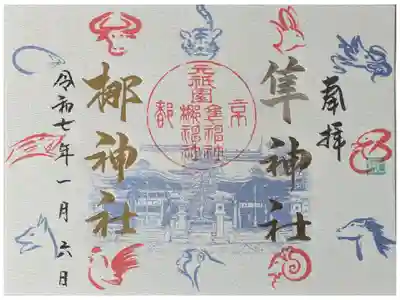 奉拝
隼神社
京都
元祇園
隼神社
梛神社
梛神社
令和七年一月六日